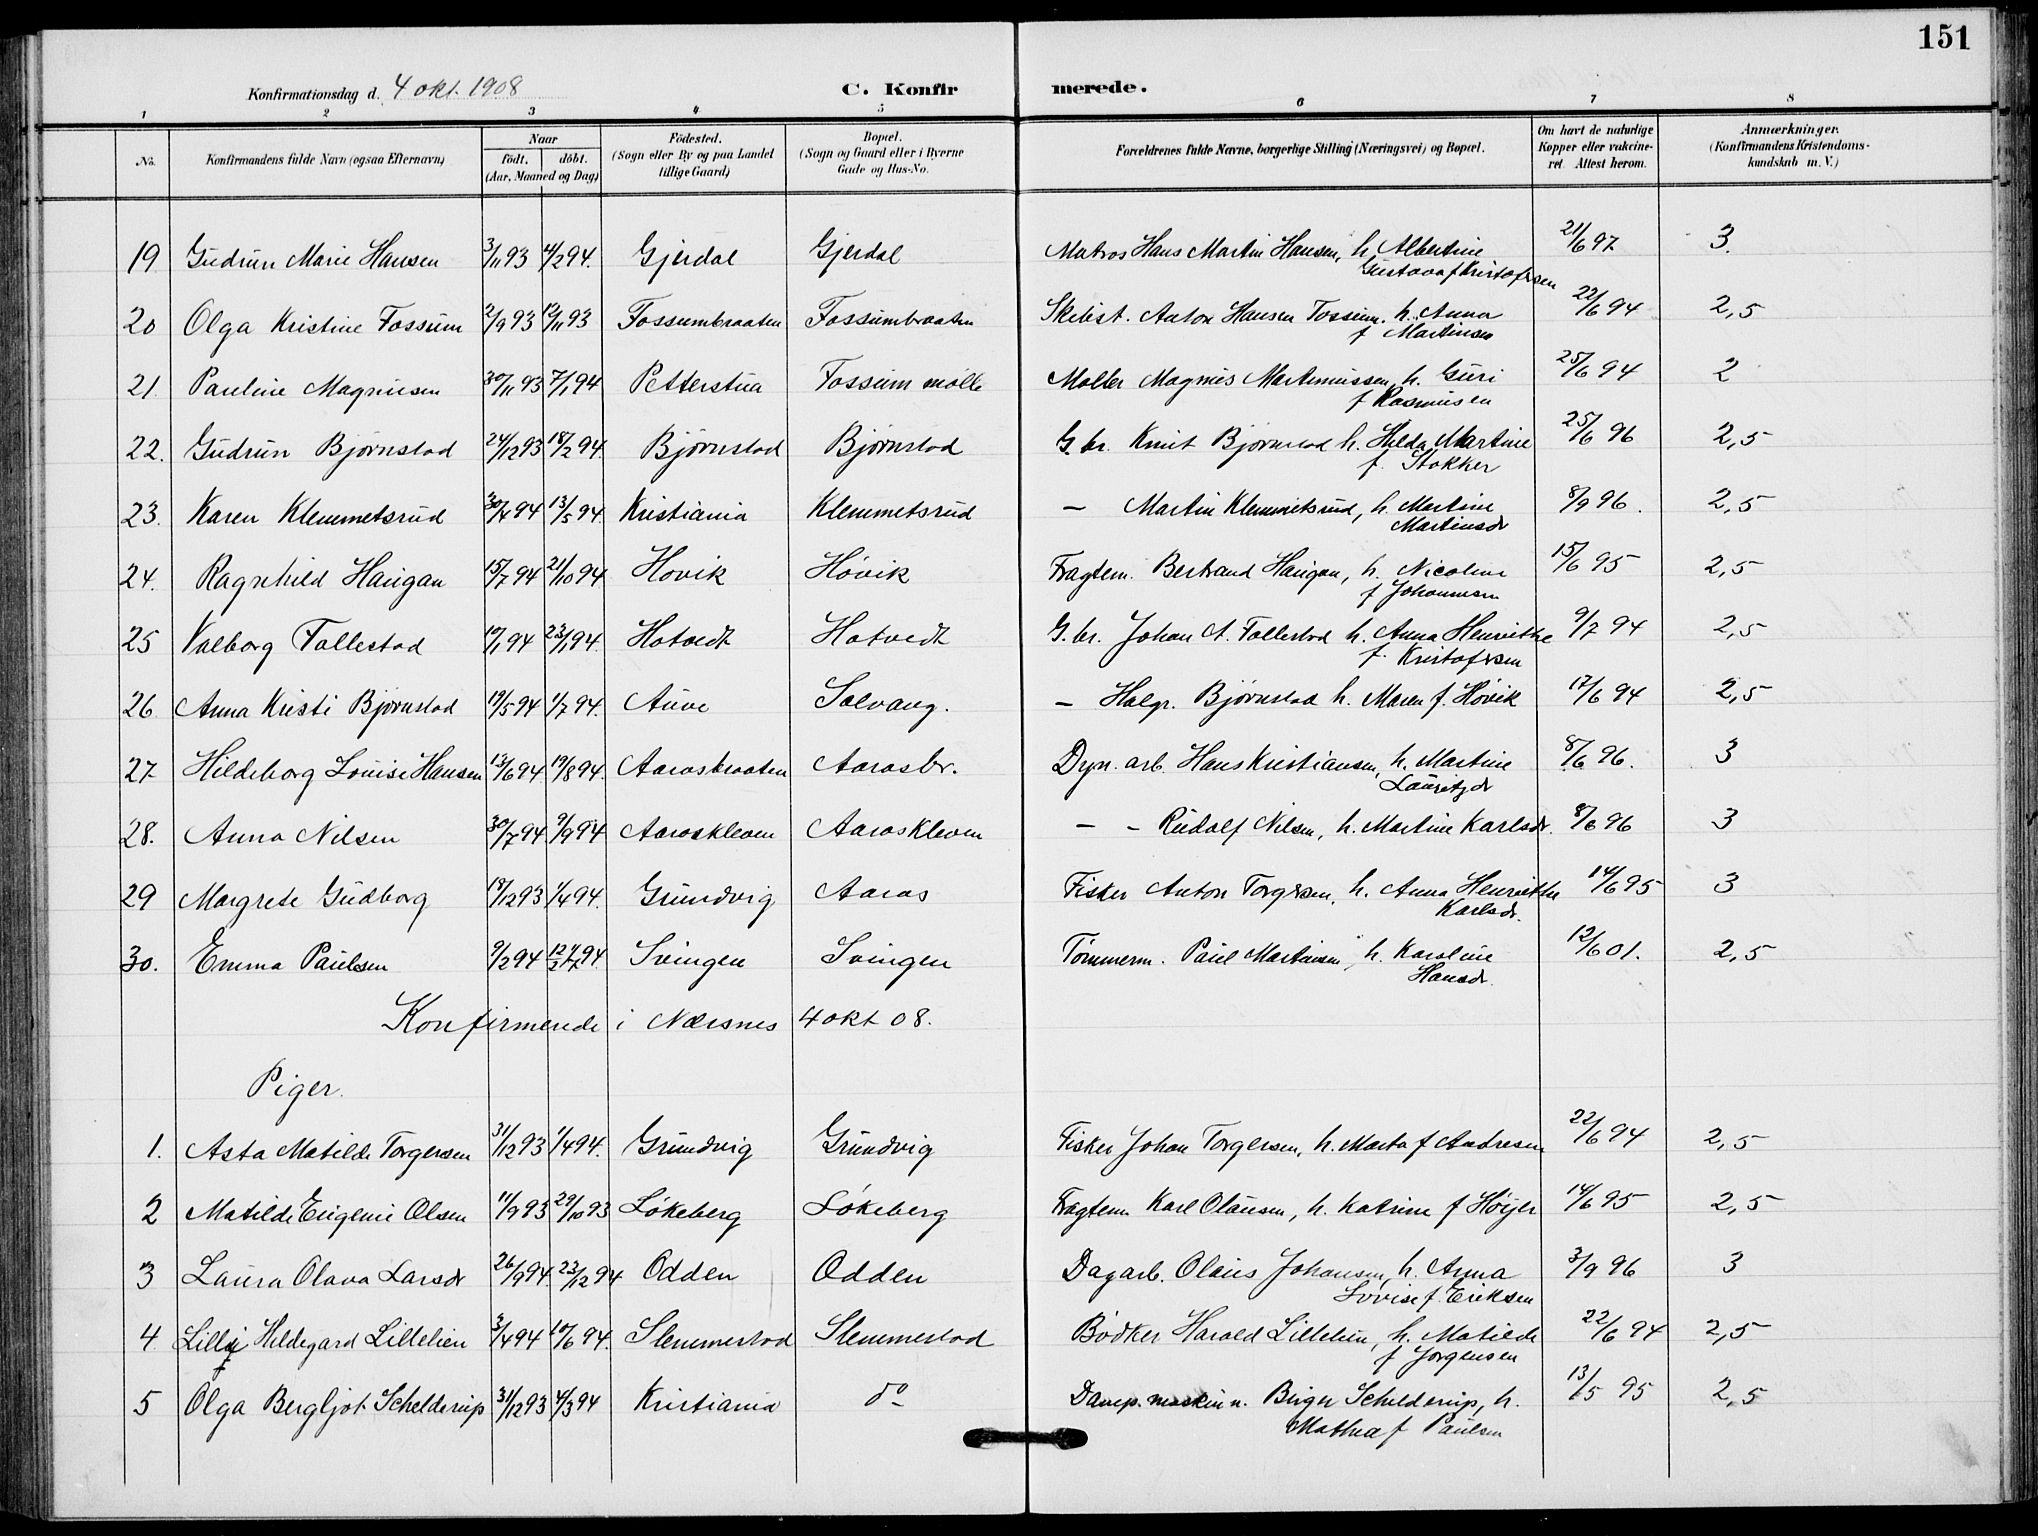 151
Konfirmationsdag d. 4 okt. 1908 C. Konfirmerede.
1 2 3 4 5 6 7 8
No. Konfirmandens fulde Navn (ogsaa Efternavn) Naar födt. döbt. (Aar, Maaned og Dag) Födested. (Sogn eller By og paa Landet tillige Gaard) Bopæl. (Sogn og Gaard eller i Byerne Gade og Hus-No. Forældrenes fulde Navne, borgerlige Stilling (Næringsvei) og Bopæl. Om havt de naturlige Kopper eller vakcineret. Attest herom. Anmærkninger. (Konfirmandens Kristendomskundskab m. V.)
19 Gudrun Marie Hansen 3/11 93 4/2 94. Gjerdal Gjerdal Matros Hans Martin Hansen, h. Albertine 21/6 97. 3.
Gustava f Kristofersen
20 Olga Kristine Fossum 2/9 93 12/11 93 Fossumbraaten Fossumbraaten Skibist. Anton Hansen Fossum. h. Anna 22/6 94 2,5
f Martinsen
21. Pauline Magnusen 30/11 93 7/1 94 Petterstua Fossum mølle Møller Magnus Martinussen, h. Guri 25/6 94 2
f Rasmusen
22. Gudrun Bjørnstad 24/12 93 18/2 94. Bjørnstad Bjørnstad G. br. Knut Bjørnstad h. Hilda Martine 25/6 96 2,5
f. Stokker
23. Karen Klemmetsrud 30/4 94 13/5 94. Kristiania Klemmetsrud – Martin Klemmetsrud, h. Martine 8/9 96. 2,5
Martinsdr
24. Ragnhild Haugan 15/7 94 21/10 94. Høvik Høvik Fragtem. Bertrand Haugan, h. Nicoline 15/6 95 2,5
f Johannesen
25 Valborg Follestad 10/1 94 23/1 94. Hotvedt Hotvedt G. br. Johan A. Follestad h. Anna Henriette 9/7 94 2,5
f. Kristofersen
26 Anna Kristi Bjørnstad 19/5 94 1/7 94. Auve Solvang. – Halgr. Bjørnstad h. Maren f. Høvik 17/6 94 2,5
27 Hildeborg Louise Hansen 13/6 94 19/8 94. Aarosbraaten Aarosbr. Dyn. arb. Hans Kristiansen, h. Martine 8/6 96. 3
Lauritzdr
28. Anna Nilsen 30/7 94. 9/9 94 Aaroskleven Aaroskleven – – Rudolf Nilsen, h. Martine Karlsdr. 8/6 96 3
29 Margrete Gudborg 18/12 93 1/4 94. Grundvig Aaros Fisker Anton Torgersen, h. Anna Henriette 14/6 95 3
Karlsdr.
30. Emma Paulsen 9/2 94 94. Svingen Svingen Tømmerm. Paul Martinsen, h. Karoline 12/6 01. 2,5
Hansdr.
Konfirmerede i Nærsnes 4 okt 08.
Piger.
1. Asta Matilde Torgersen 31/12 93 1/4 94. Grundvig Grundvig Fisker Johan Torgersen, h. Marta f Andresen 22/6 94 2,5
2 Matilde Eugenie Olsen 11/9 93 29/10 93 Løkeberg Løkeberg Fragtem Karl Olausen, h. Katrine f Høyer 14/6 95 2,5
3 Laura Olava Larsdr 26/9 94. 23/12 94 Odden Odden Dagarb. Olaus Johansen, h. Anna 3/9 96 3
Lovise f. Eriksen
4. Lilly Hildegard Lillelien 3/4 94 10/6 94. Slemmestad Slemmestad Bødker Harald Lillelien, h. Matilde 22/6 94 2,5
f Jørgensen
5 Olga Bergljot Schelderup 31/12 93 4/3 94 Kristiania do Damp. maskin n. Birger Schelderup, h. 13/5 95 2,5
Mathea f Paulsen